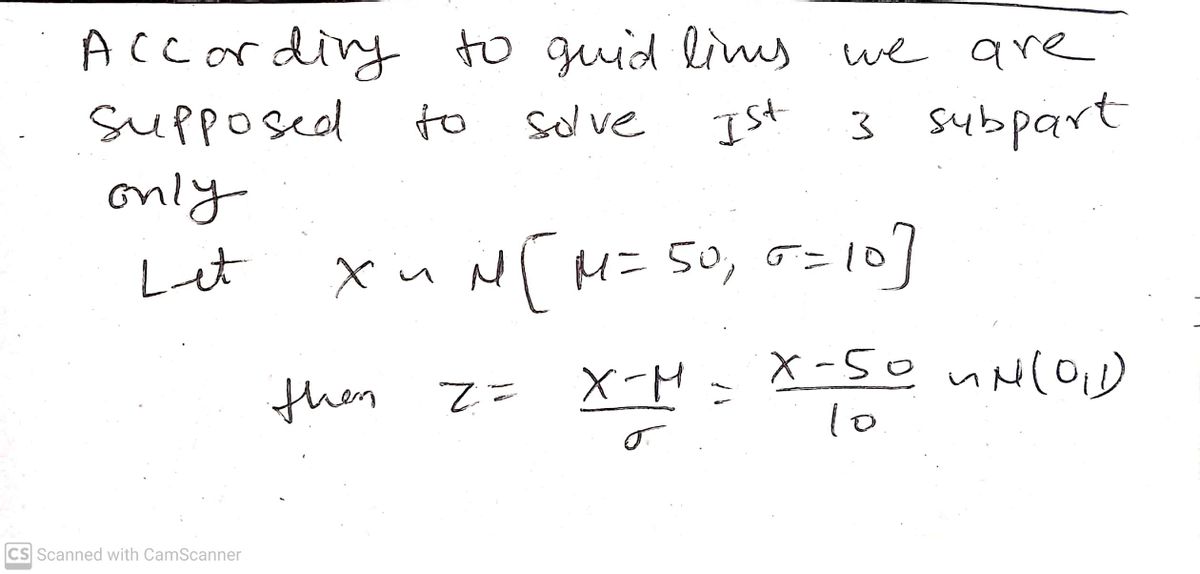 According to guid lines we are
supposed to solve Ist 3 subpart
only
Let X ~ N[μ= 50, σ=10]
then Z = X-μ/σ = X-50/10 ~ N(0,1)
CS Scanned with CamScanner